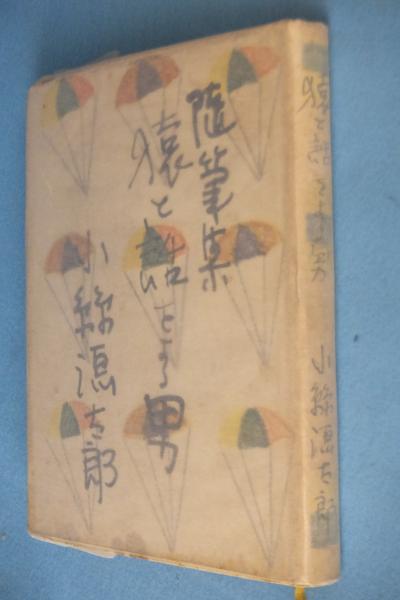 随筆集
猿と話をする男
小絲源太郎
猿と話をする男 小絲源太郎